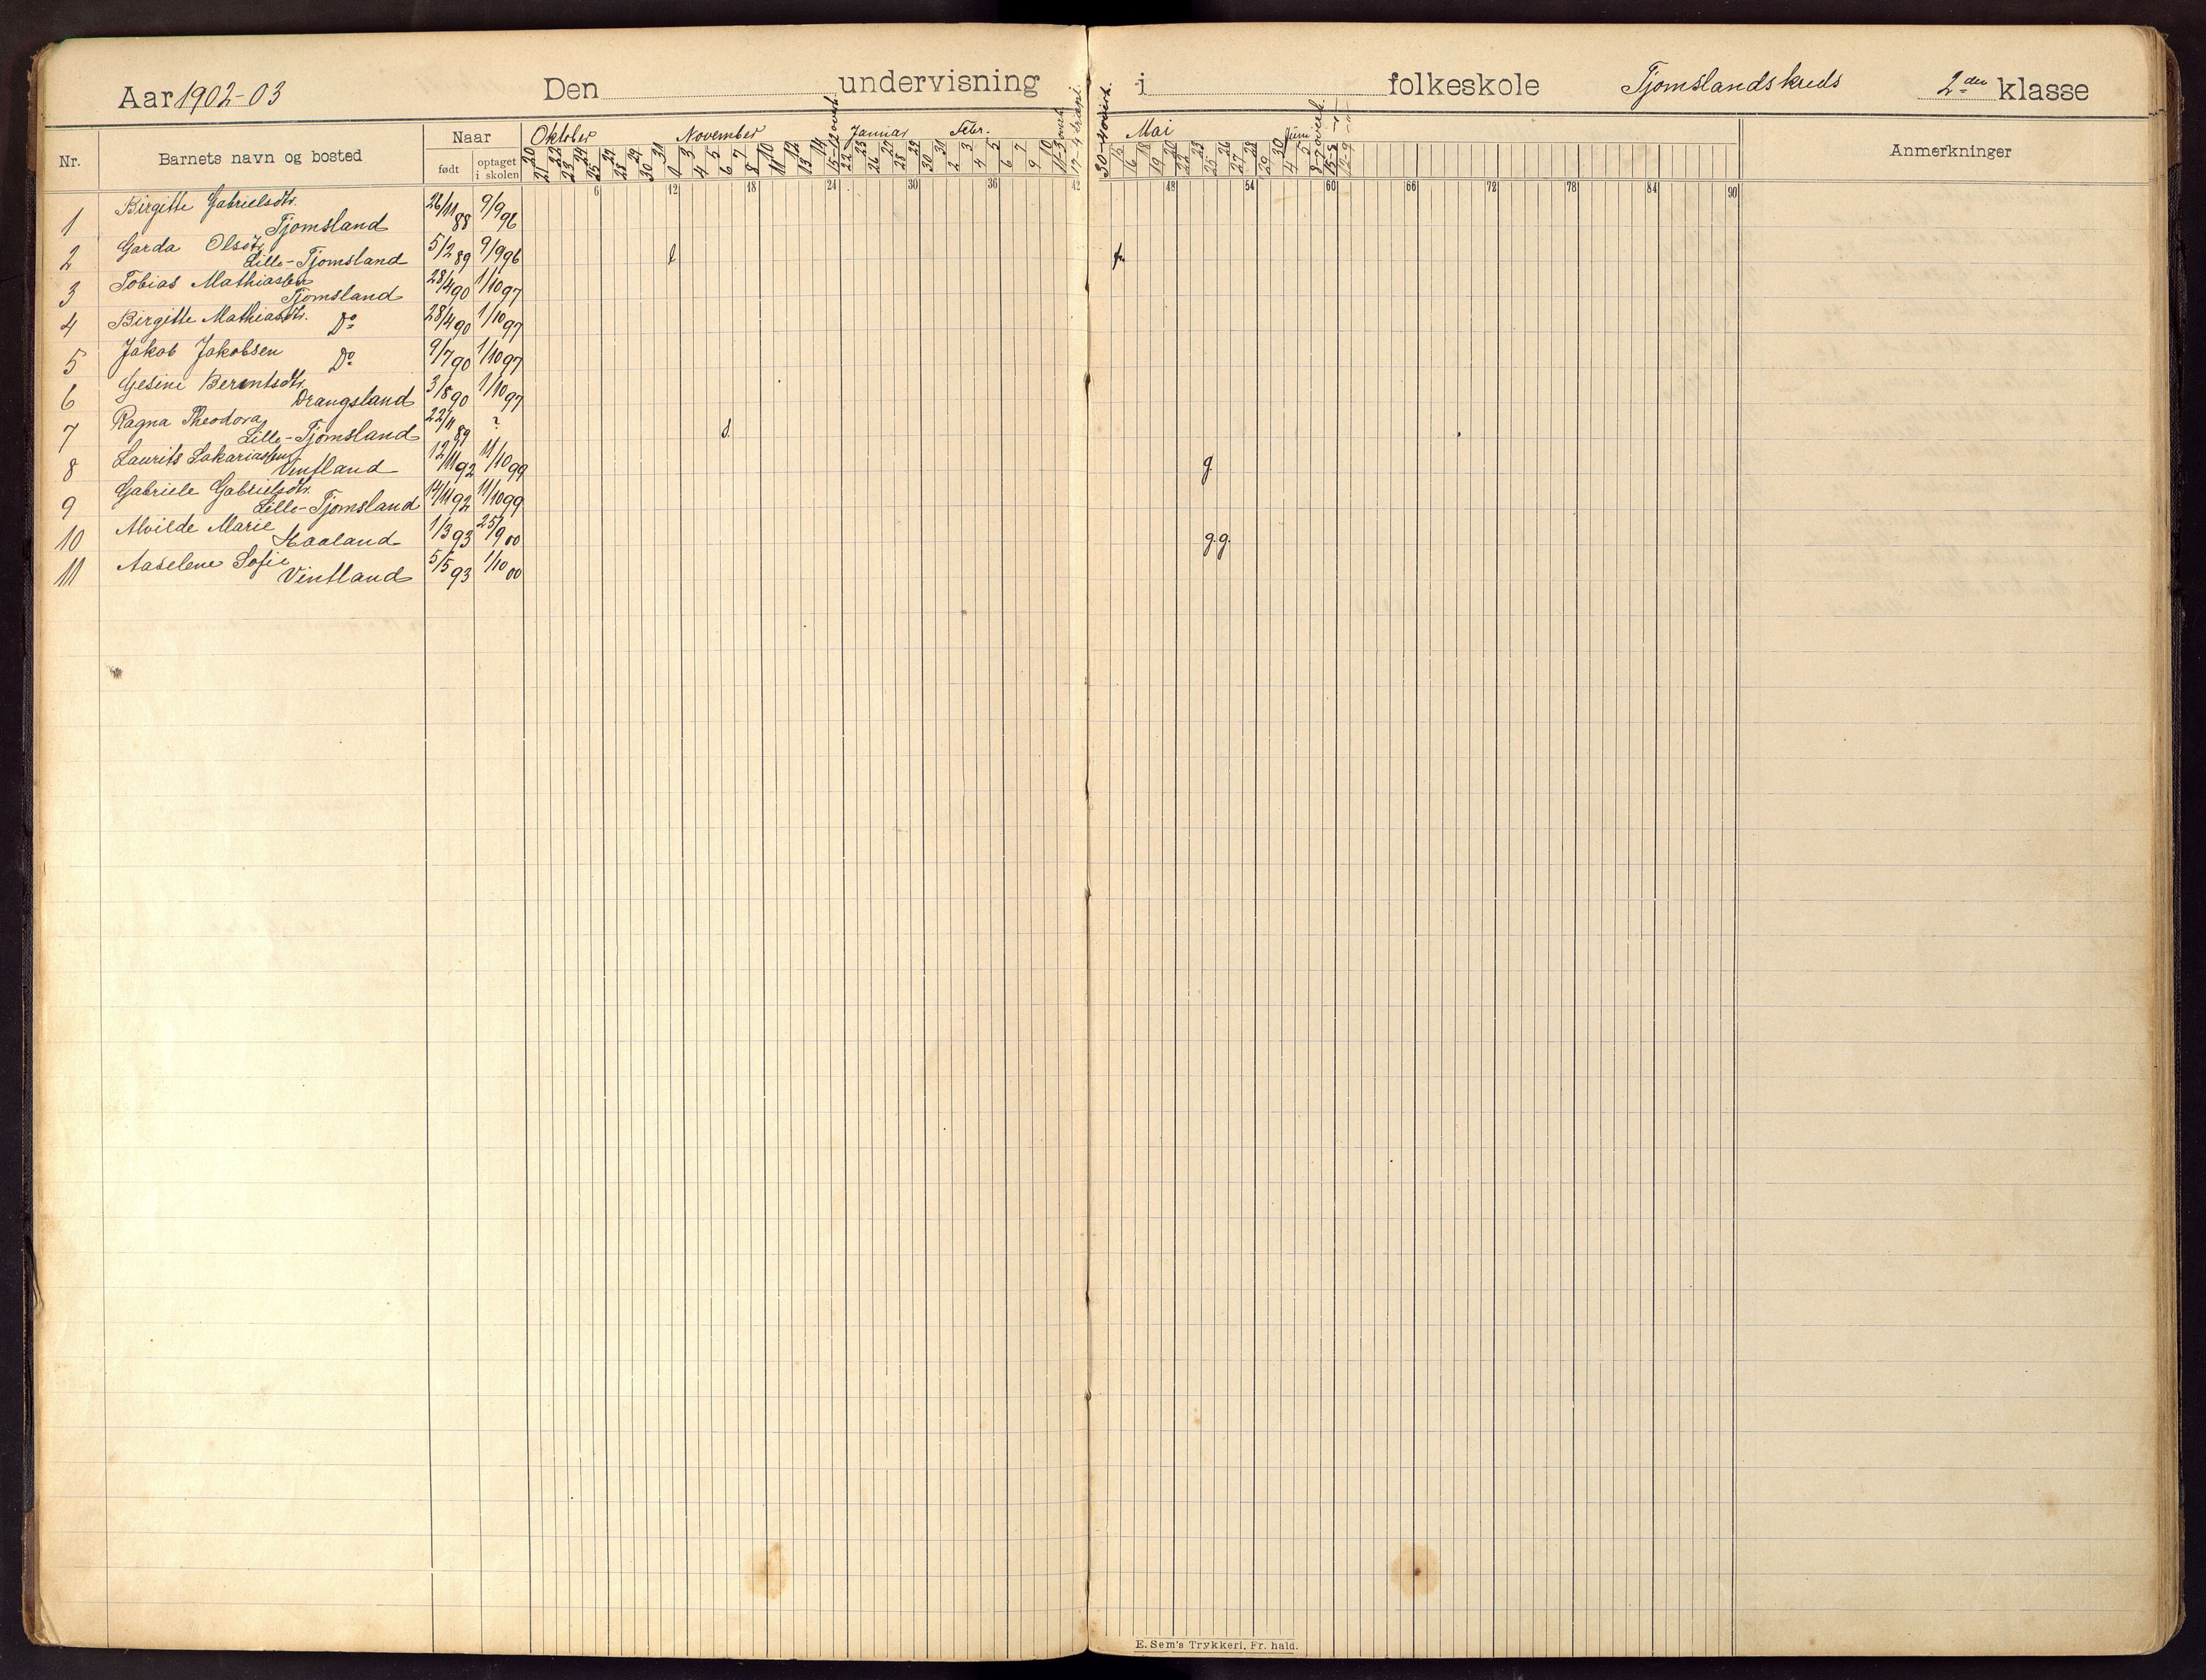 Aar 1902-03 Den undervisning i folkeskole Tjomslandskreds 2den klasse
Nr. Barnets navn og bosted Naar født optaget i skolen Oktober November Januar Febr. Mai Juni Anmerkninger
20 21 22 23 24 25 27 28 29 30 31 1 3 4 5 6 7 8 10 11 12 13 14 22 23 26 27 28 29 30 31 2 3 4 5 6 7 9 10
15 16 18 19 20 22 23 25 26 27 28 29 30 4 5
6 12 18 24 30 36 42 48 54 60 66 72 78 84 90
1 Birgitte Gabrielsdtr. 26/11 88 9/9 96
Tjomsland
2 Garda Olsdtr. 5/2 89 9/9 96
Lille-Tjomsland
3 Tobias Mathiassen 28/4 90 1/10 97
Tjomsland
4 Birgitte Mathiasdtr. Do 28/4 90 1/10 97
5 Jakob Jakobsen Do 9/7 90 1/10 97
6 Gesine Berentsdtr. 3/8 90 1/10 97
Drangsland
7 Ragna Theodora 22/11 89 ? s.
Lille-Tjomsland
8 Laurits Sakariassen 12/11 92 11/10 99 g.
Vintland
9 Gabriele Gabrielsdtr. 14/11 92 11/10 99
Lille-Tjomsland
10 Alvilde Marie 1/3 93 25/9 00 g. g.
Haaland
11 Aaselene Sofie 5/5 93 1/10 00
Vintland
E. Sem's Trykkeri, Fr. hald.